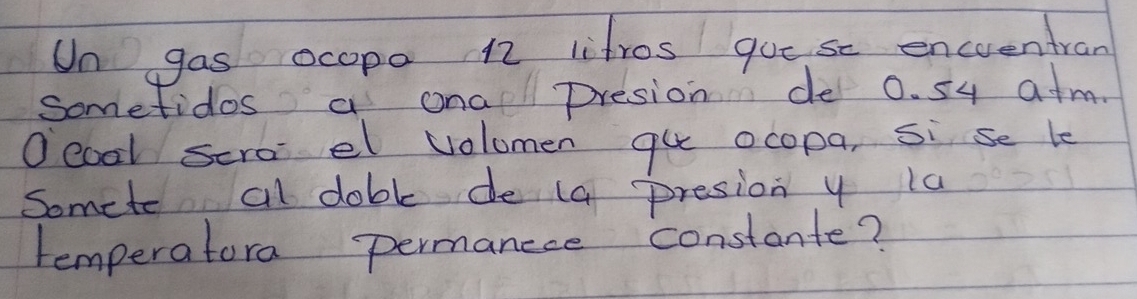 Un gas ocupa 12 litros que se encuentran
sometidos a una presion de 0.54 atm.
¿cual sera el volumen que ocupa, si se le
somete al doble de la presion y la
temperatura permanece constante?